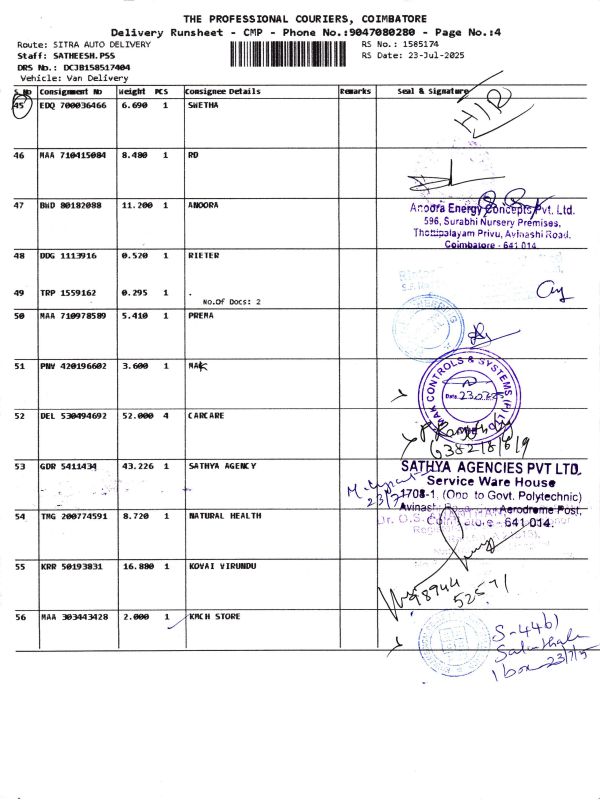 THE PROFESSIONAL COURIERS, COIMBATORE
Delivery Runsheet - CMP - Phone No.:9047080280 - Page No.:4
Route: SITRA AUTO DELIVERY RS No.: 1585174
Staff: SATHEESH.PSS RS Date: 23-Jul-2025
DRS No.: DCJB158517404
Vehicle: Van Delivery
S.No Consignment No Weight PCS Consignee Details Remarks Seal & Signature
45 EDQ 700036466 6.690 1 SWETHA
H/D
46 MAA 710415084 8.480 1 RD
47 BWD 80182088 11.200 1 ANOORA
Anoora Energy Concepts Pvt. Ltd.
596, Surabhi Nursery Premises,
Thottipalayam Privu, Avinashi Road,
Coimbatore - 641 014.
48 DDG 1113916 0.520 1 RIETER
49 TRP 1559162 0.295 1 .
No.Of Docs: 2
50 MAA 710978589 5.410 1 PREMA
51 PNV 420196602 3.600 1 MAK
MAK CONTROLS & SYSTEMS (P) LTD
Date
52 DEL 530494692 52.000 4 CARCARE
6382181619
53 GDR 5411434 43.226 1 SATHYA AGENCY
SATHYA AGENCIES PVT LTD.
Service Ware House
1708-1, (Opp to Govt. Polytechnic)
Avinashi Aerodrome Post,
Coimbatore - 641 014.
54 TMG 200774591 8.720 1 NATURAL HEALTH
55 KRR 50193831 16.880 1 KOVAI VIRUNDU
98944
52571
56 MAA 303443428 2.000 1 KMCH STORE
S-4461
1 box 23/7/25